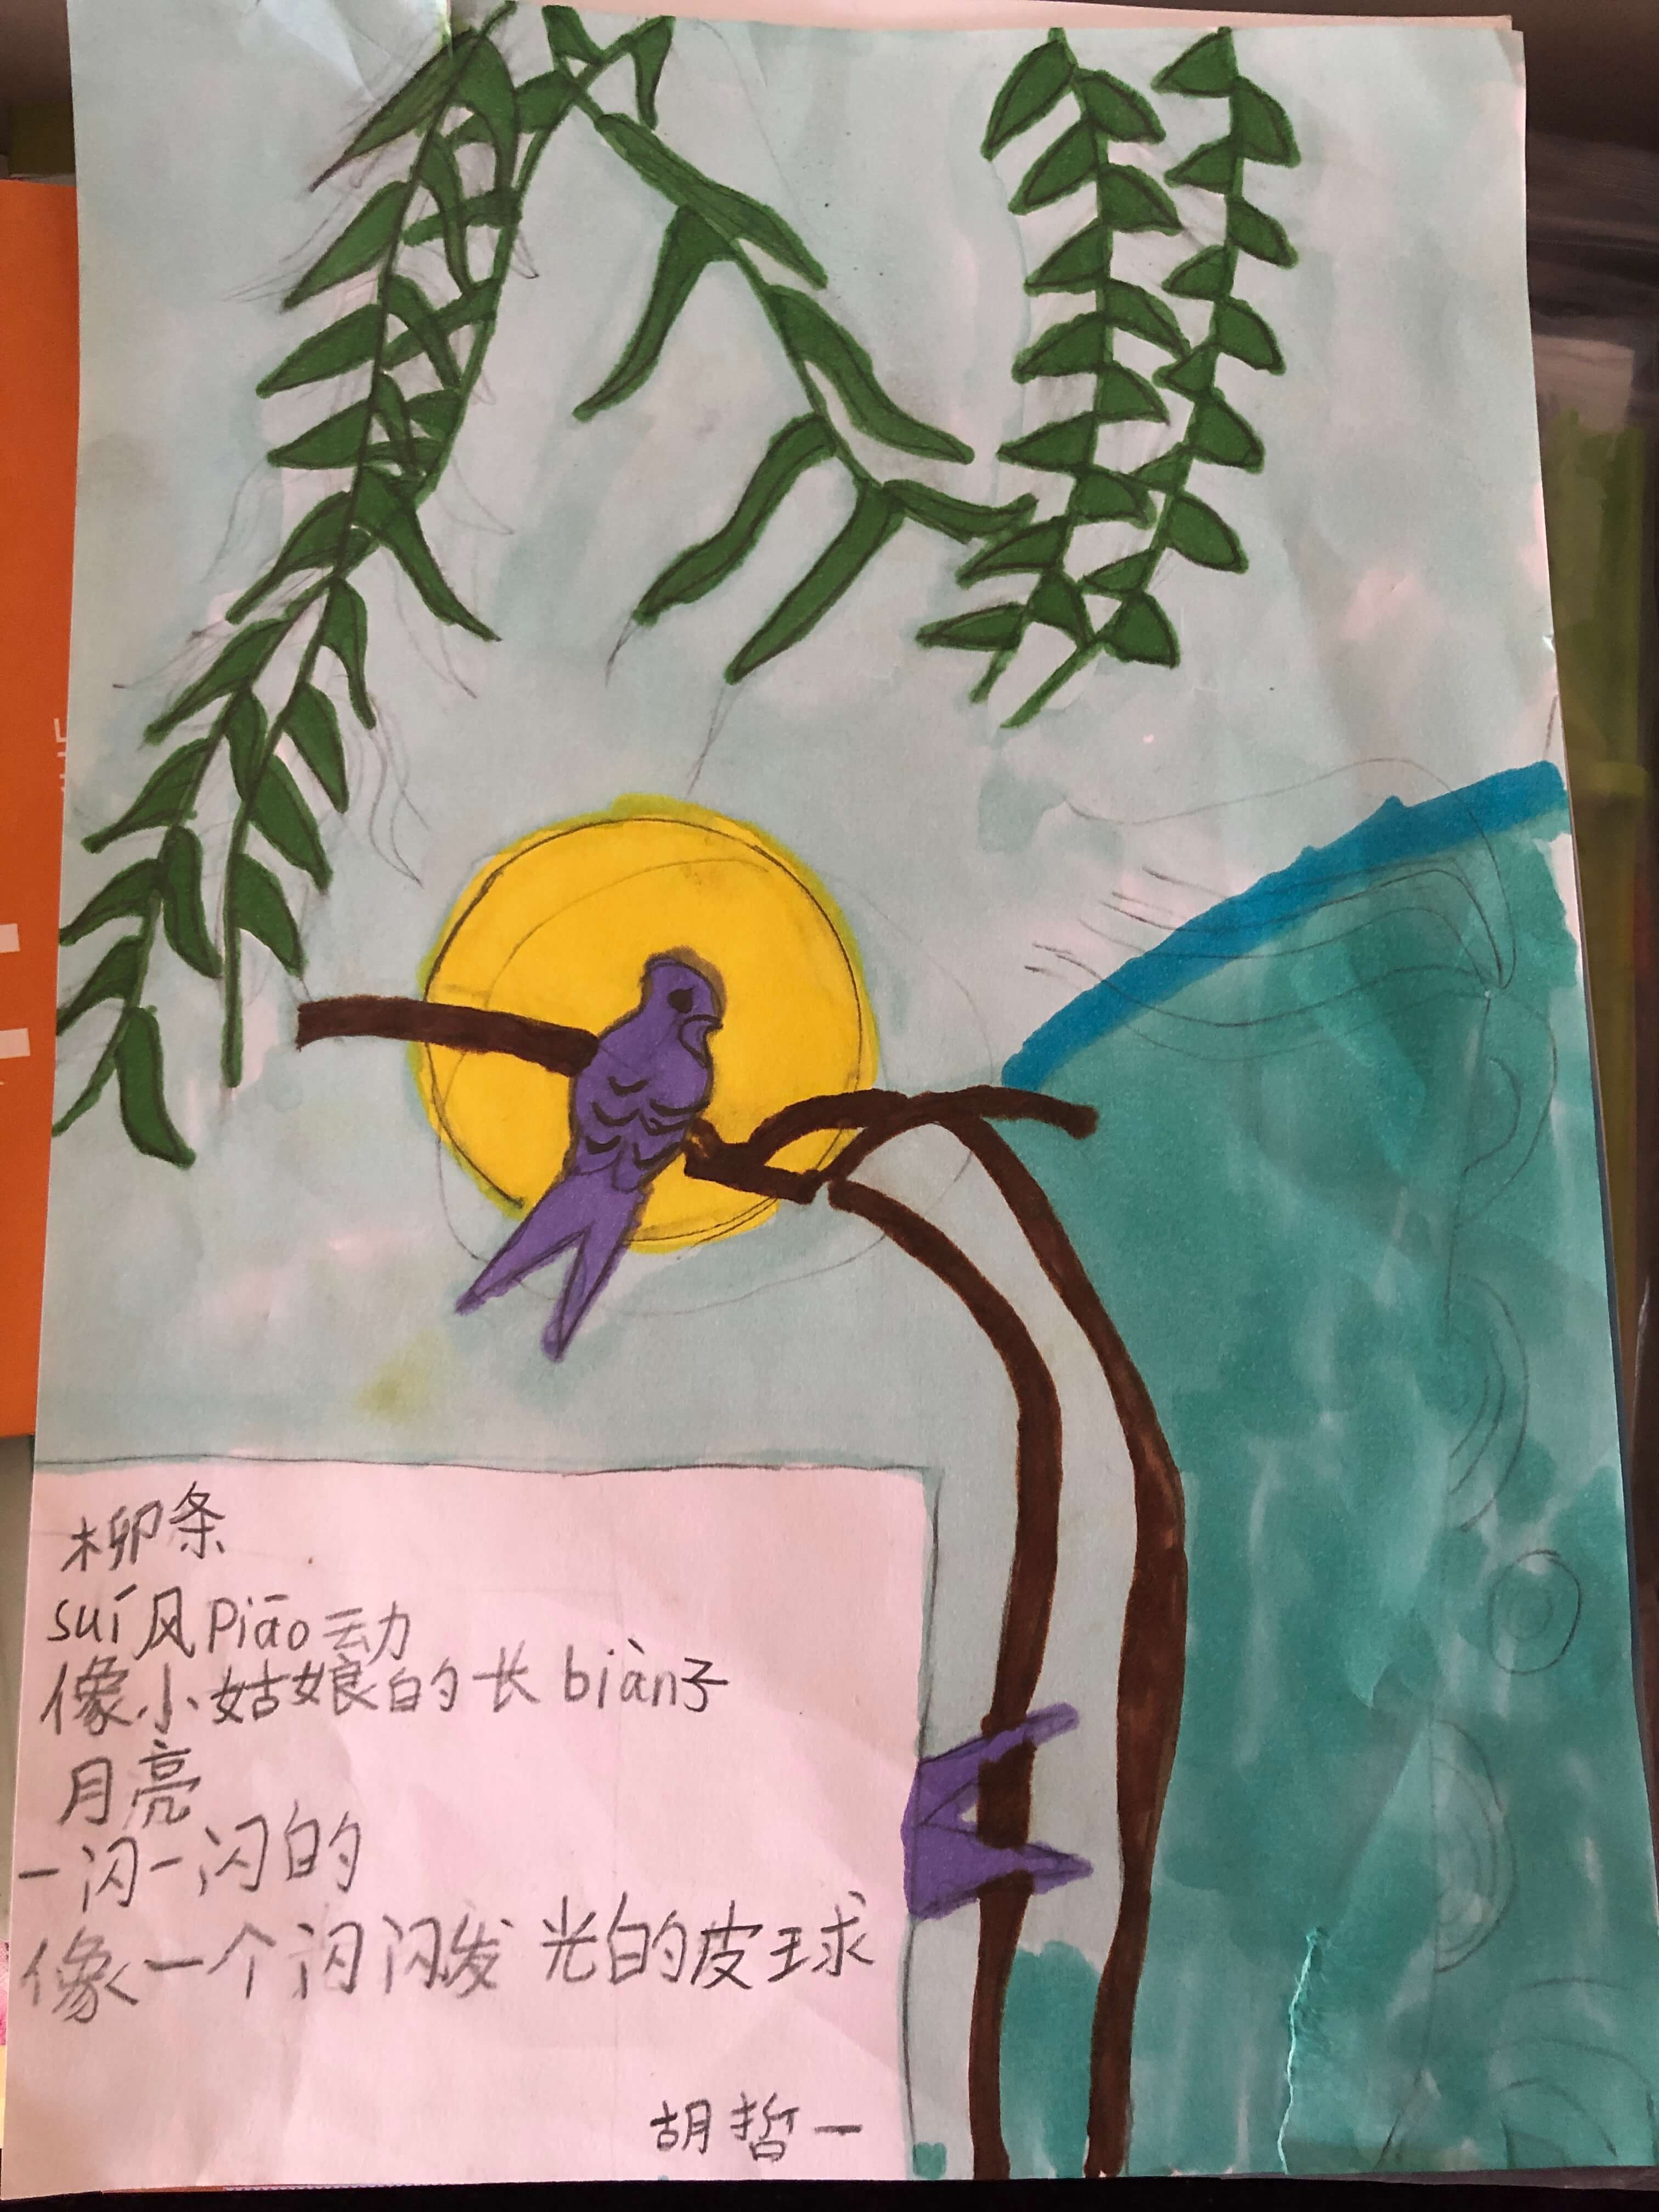 柳条
suí风piāo动
像小姑娘的长biàn子
月亮
一闪一闪的
像一个闪闪发光的皮球
胡哲一